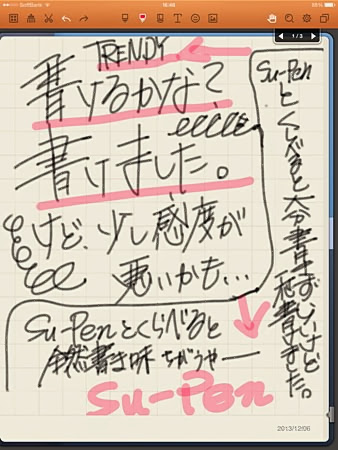 SoftBank
16:48
1/3
TRENDY
書けるかな？
書けました。
けど、少し感度が
悪いかも…
Su-Penとくらべると大分書き
書けました。
Su-Penとくらべると
全然書き味ちがうやー
Su-Pen
2013/12/06